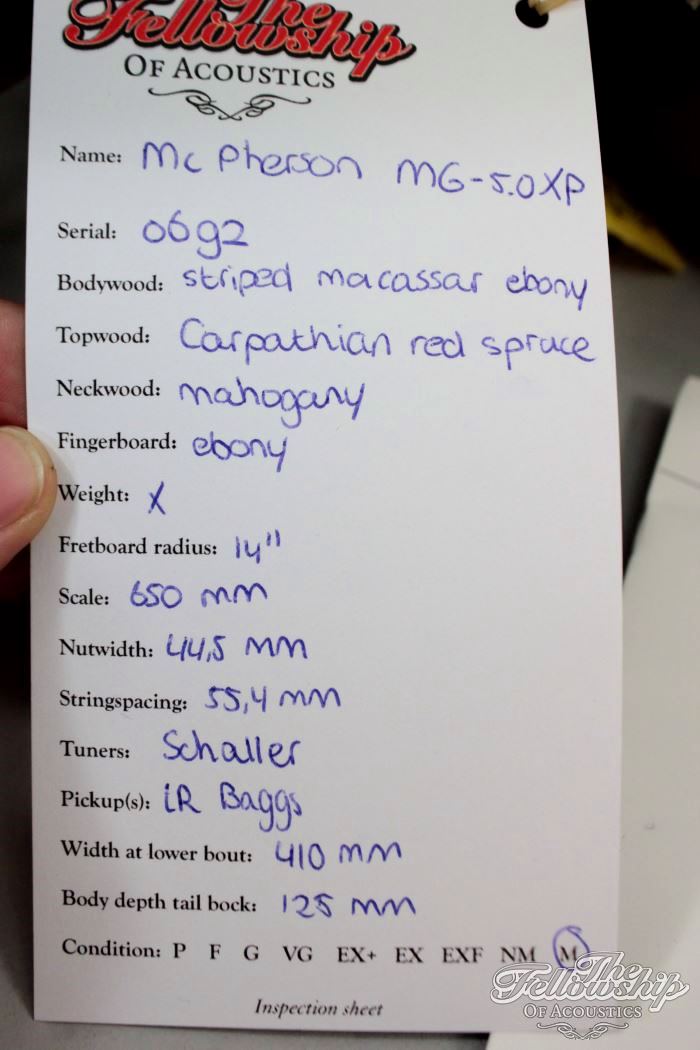 The
Fellowship
OF ACOUSTICS
Name: Mc Pherson MG-5.0XP
Serial: 0692
Bodywood: striped macassar ebony
Topwood: Carpathian red spruce
Neckwood: mahogany
Fingerboard: ebony
Weight: X
Fretboard radius: 14"
Scale: 650 mm
Nutwidth: 44,5 mm
Stringspacing: 55,4 mm
Tuners: Schaller
Pickup(s): LR Baggs
Width at lower bout: 410 mm
Body depth tail bock: 125 mm
Condition: P F G VG EX+ EX EXF NM M
Inspection sheet
The
Fellowship
OF ACOUSTICS